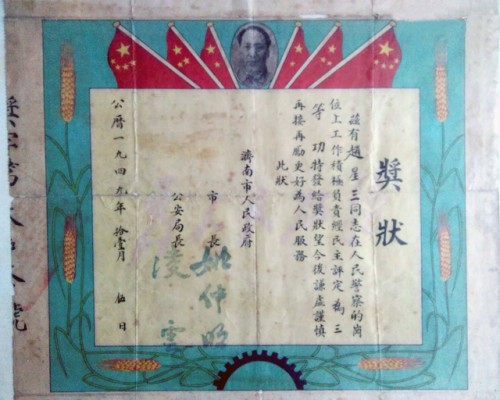 獎狀
茲有趙星三同志在人民警察的崗
位上工作積極負責經民主評定為三
等功特發給獎狀望今後謙虛謹慎
再接再勵更好為人民服務
此狀
濟南市人民政府
市長
姚仲明
公安局長
凌雲
公曆一九四九年拾壹月伍日